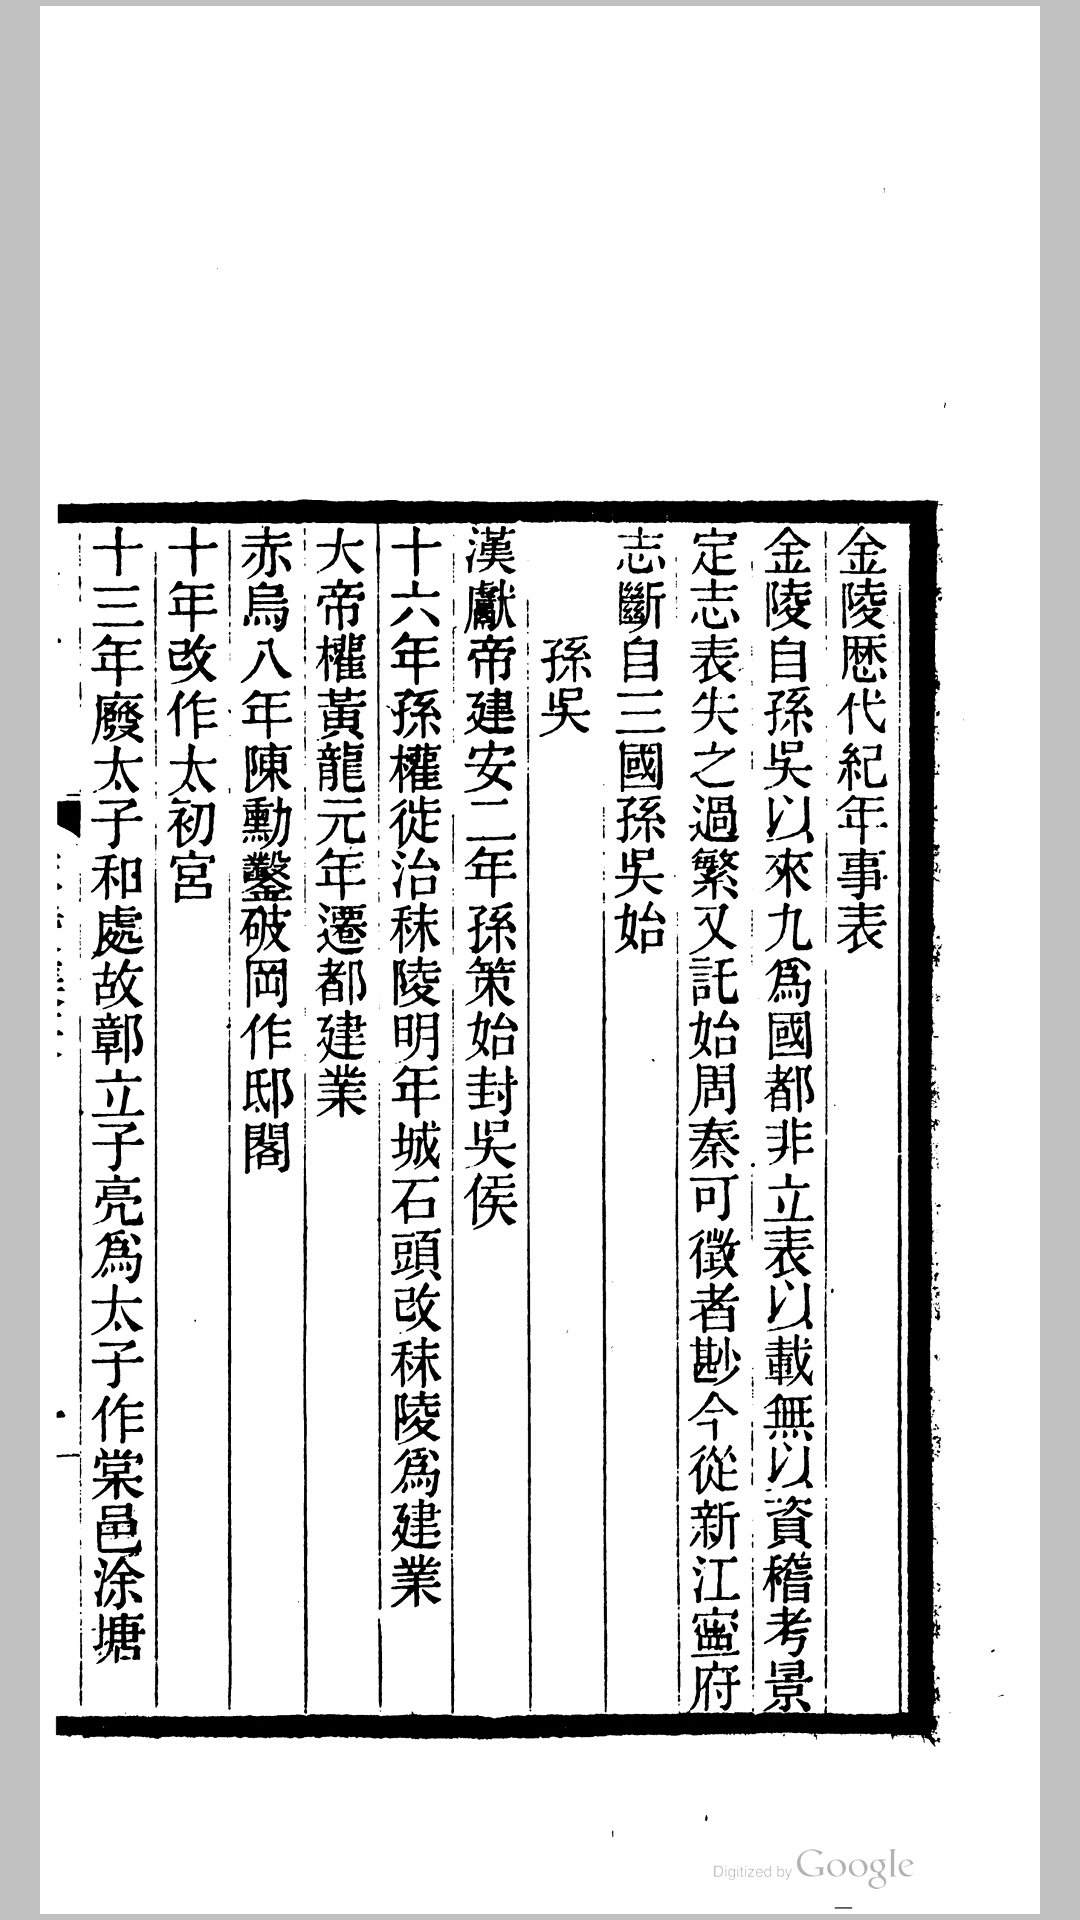 金陵歷代紀年事表
金陵自孫吳以來九爲國都非立表以載無以資稽考景
定志表失之過繁又託始周秦可徵者尠今從新江寧府
志斷自三國孫吳始
孫吳
漢獻帝建安二年孫策始封吳侯
十六年孫權徙治秣陵明年城石頭改秣陵爲建業
大帝權黃龍元年遷都建業
赤烏八年陳勳鑿破岡作邸閣
十年改作太初宮
十三年廢太子和處故鄣立子亮爲太子作棠邑涂塘
Digitized by Google